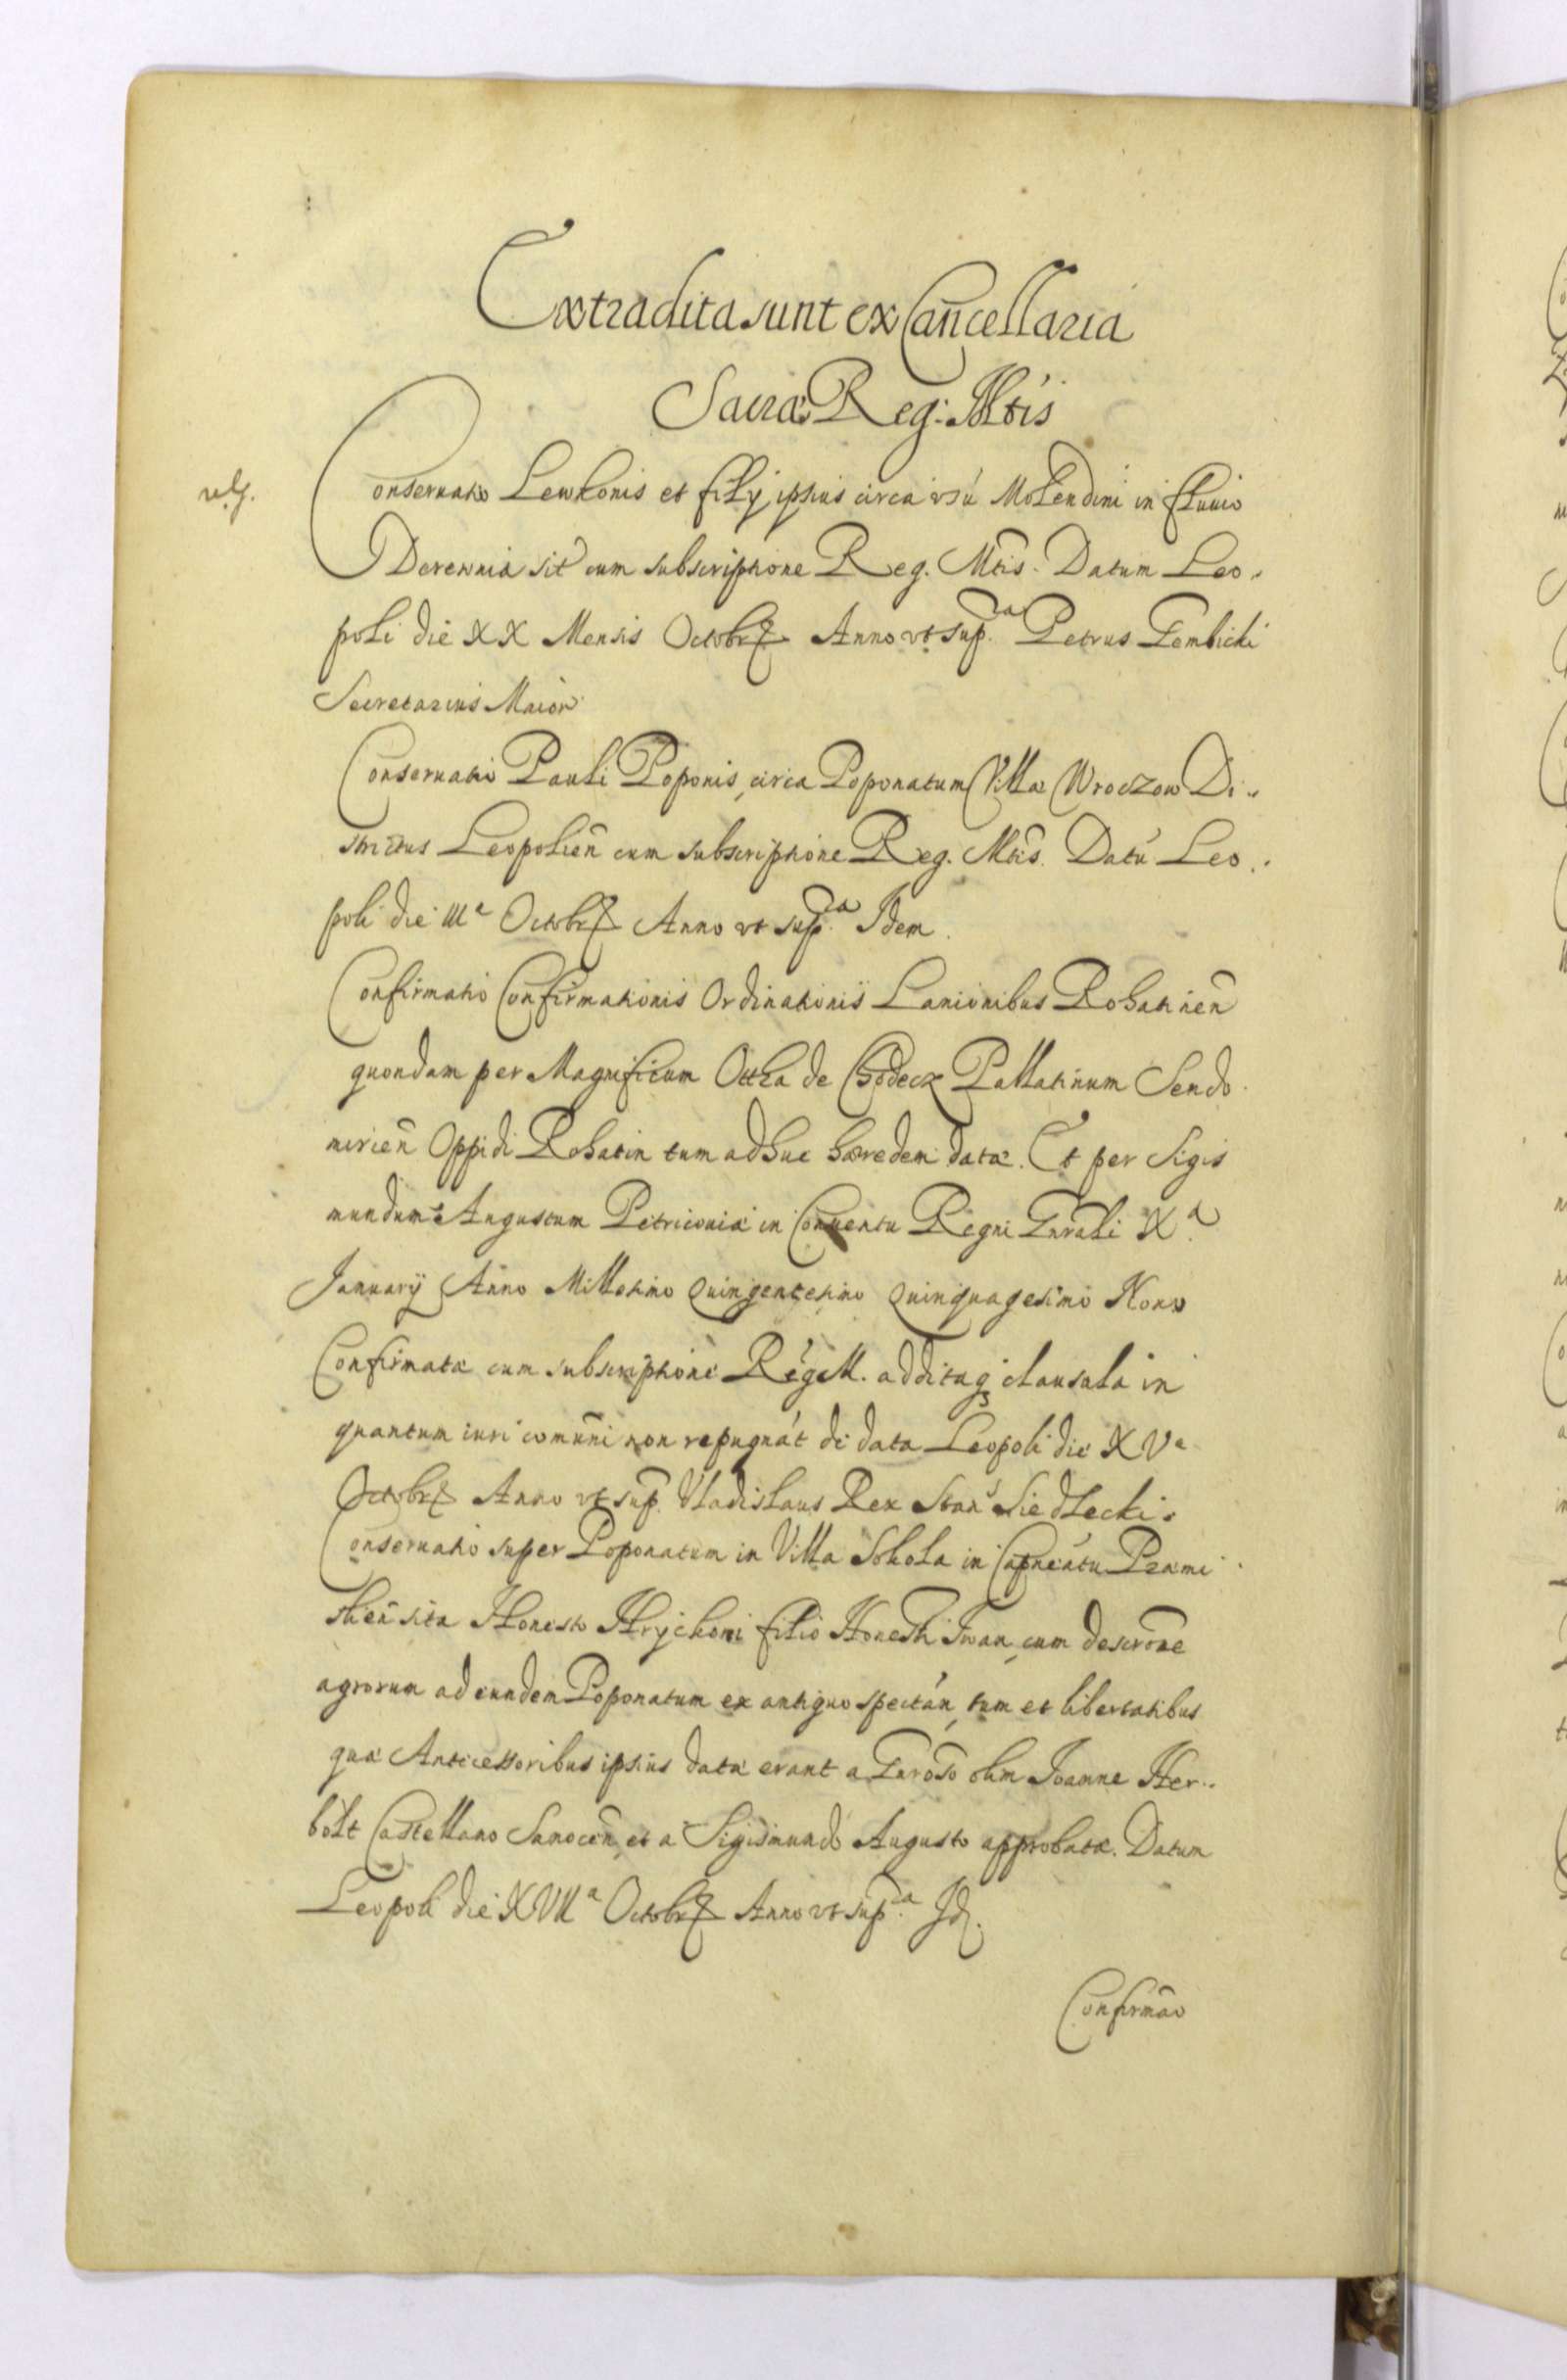 Extradita sunt ex Cancellaria
Sacræ Reg: Mtis
Conseruatio Lewkonis et filij ipsius circa vsú Molendini in fluuio
Derewnia sit cum subscriptione Reg. Mtis. Datum Leo-
poli die XX Mensis Octobr Anno vt sup.a Petrus Gembicki
Secretarius Maior
Conseruatio Pauli Poponis, circa Poponatum Villæ Wroczow Di-
strictus Leopolien̄ cum subscriptione Reg. Mtis. Datú Leo-
poli die IIIa Octobr Anno vt sup.a Idem.
Confirmatio Confirmationis Ordinationis Lanionibus Rohatinen̄
quondam per Magnificum Ottha de Chodecz Pallatinum Sendo
mirien̄ Oppidi Rohatin tum adhuc hæredem datæ. Et per Sigis
mundum Augustum Petricouiæ in Conuentu Regni Gnrali Xa
Januarij Anno Millesimo Quingentesimo Quinquagesimo Nono
Confirmatæ cum subscriptione Reg M. additaq clausula in
quantum iuri comuni non repugnát de data Leopoli die XVa
Octobr Anno vt sup. Vladislaus Rex Stans Siedlecki.
Conseruatio super Poponatum in Villa Sokola in Capneatu Præmi
slien̄ sita Honesto Hryckoni filio Honesti Iwan, cum descrone
agrorum ad eundem Poponatum ex antiquo spectan, tum et libertatibus
quæ Antecessoribus ipsius datæ erant a Gnroso olim Joanne Her-
bolt Castellano Sanocen̄, et a Sigismundo Augusto approbatæ. Datum
Leopoli die XVIIa Octobr Anno vt sup.a Id.
Confirmao